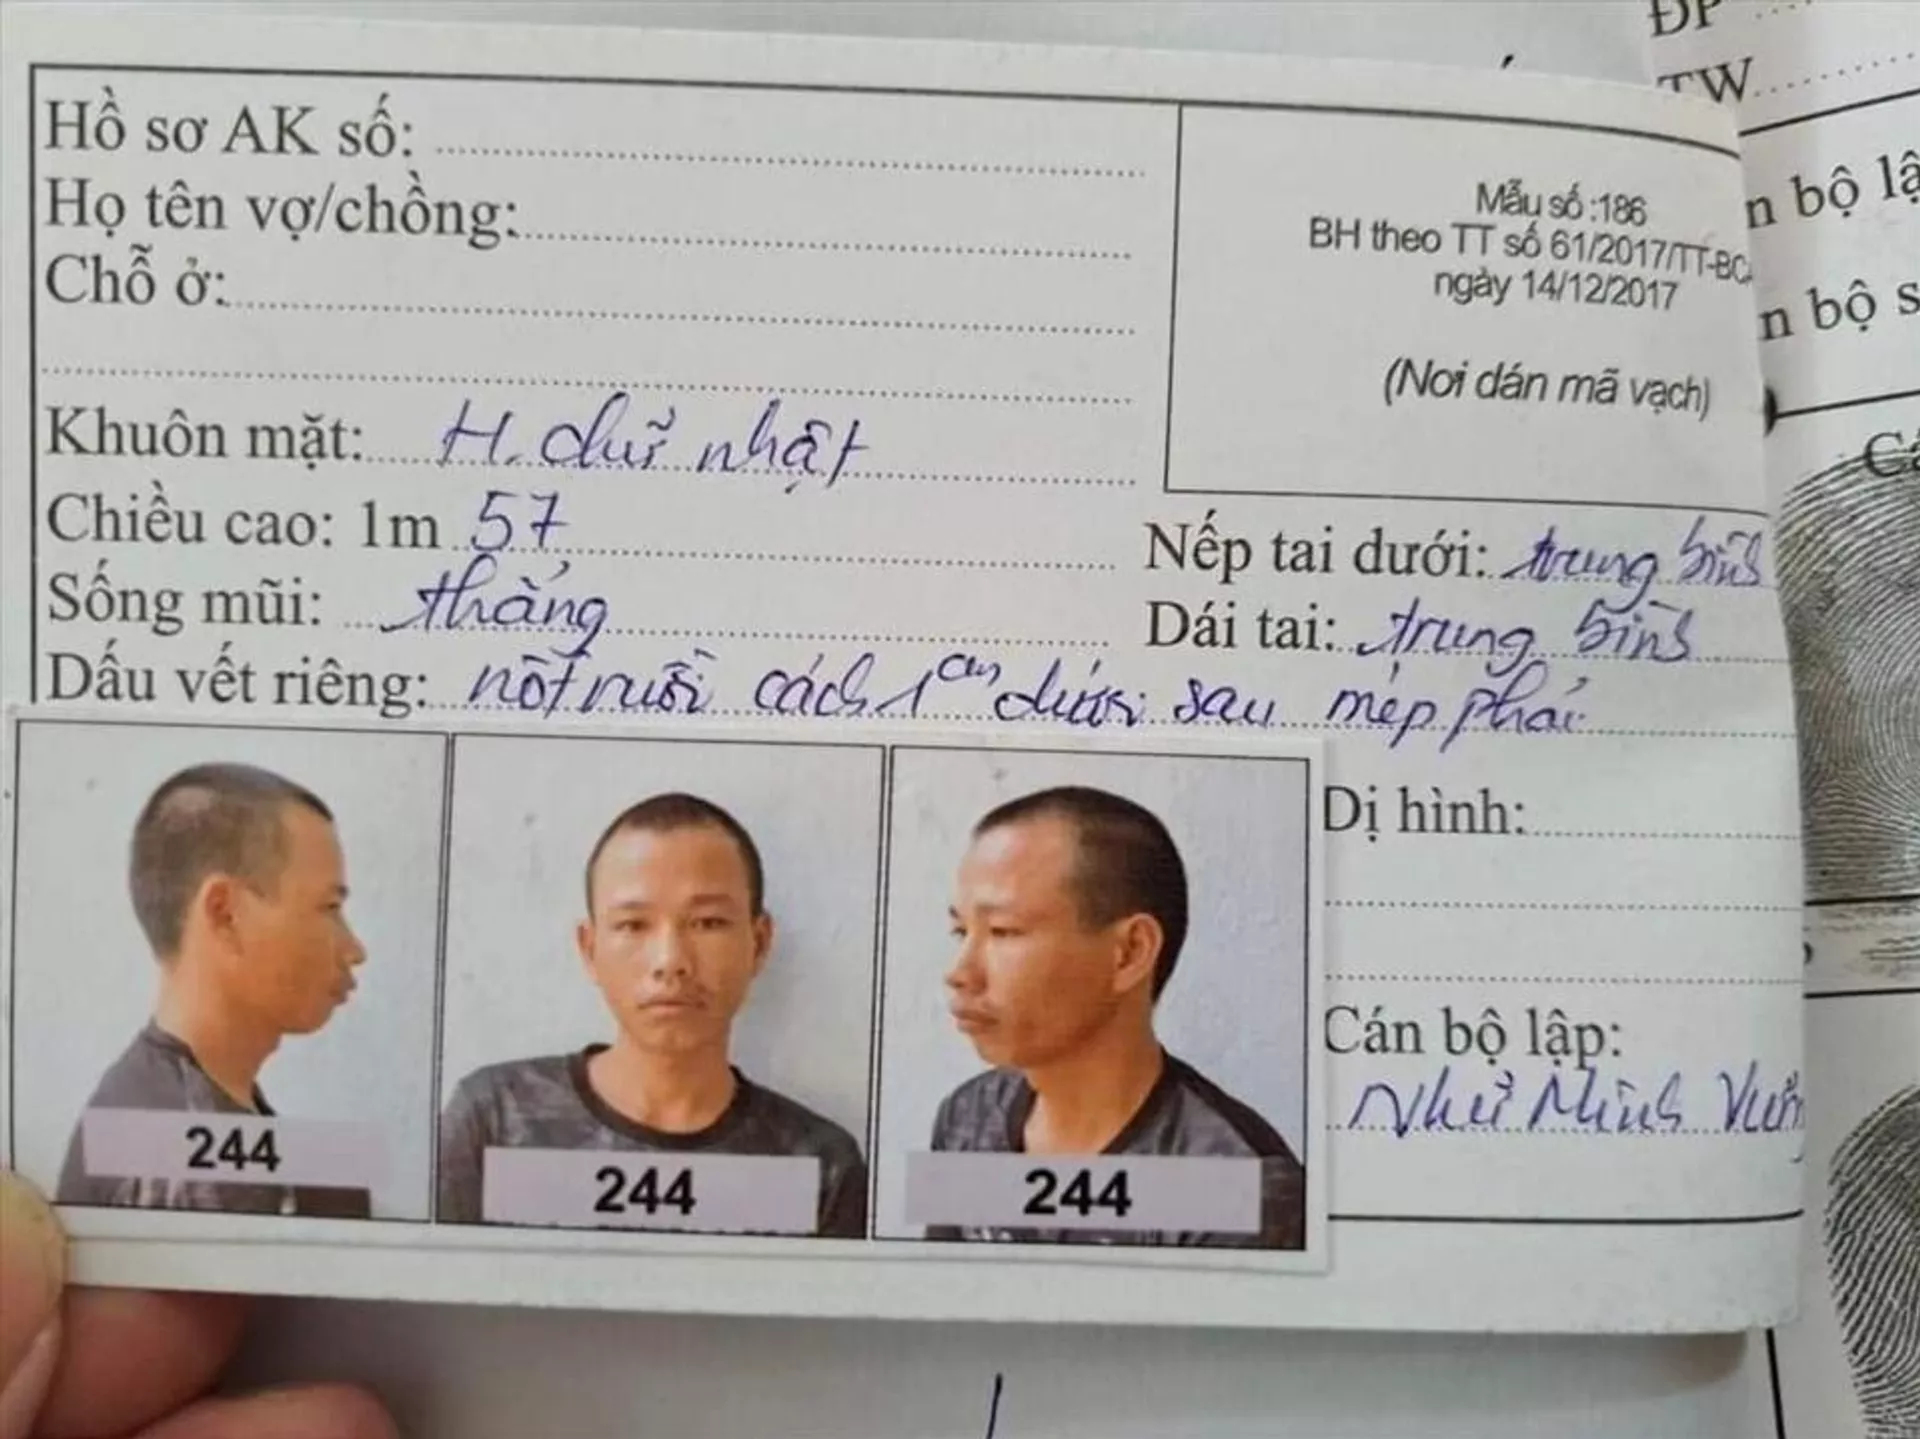 Hồ sơ AK số:
Họ tên vợ/chồng:
Chỗ ở:
Mẫu số :186
BH theo TT số 61/2017/TT-BCA
ngày 14/12/2017
(Nơi dán mã vạch)
Khuôn mặt: H. chữ nhật
Chiều cao: 1m 57
Nếp tai dưới: trung bình
Sống mũi: thẳng
Dái tai: trung bình
Dấu vết riêng: nốt ruồi cách 1cm dưới sau mép phải
Dị hình:
Cán bộ lập:
Như Minh
244
244
244
ĐP
TW
n bộ lậ
n bộ s